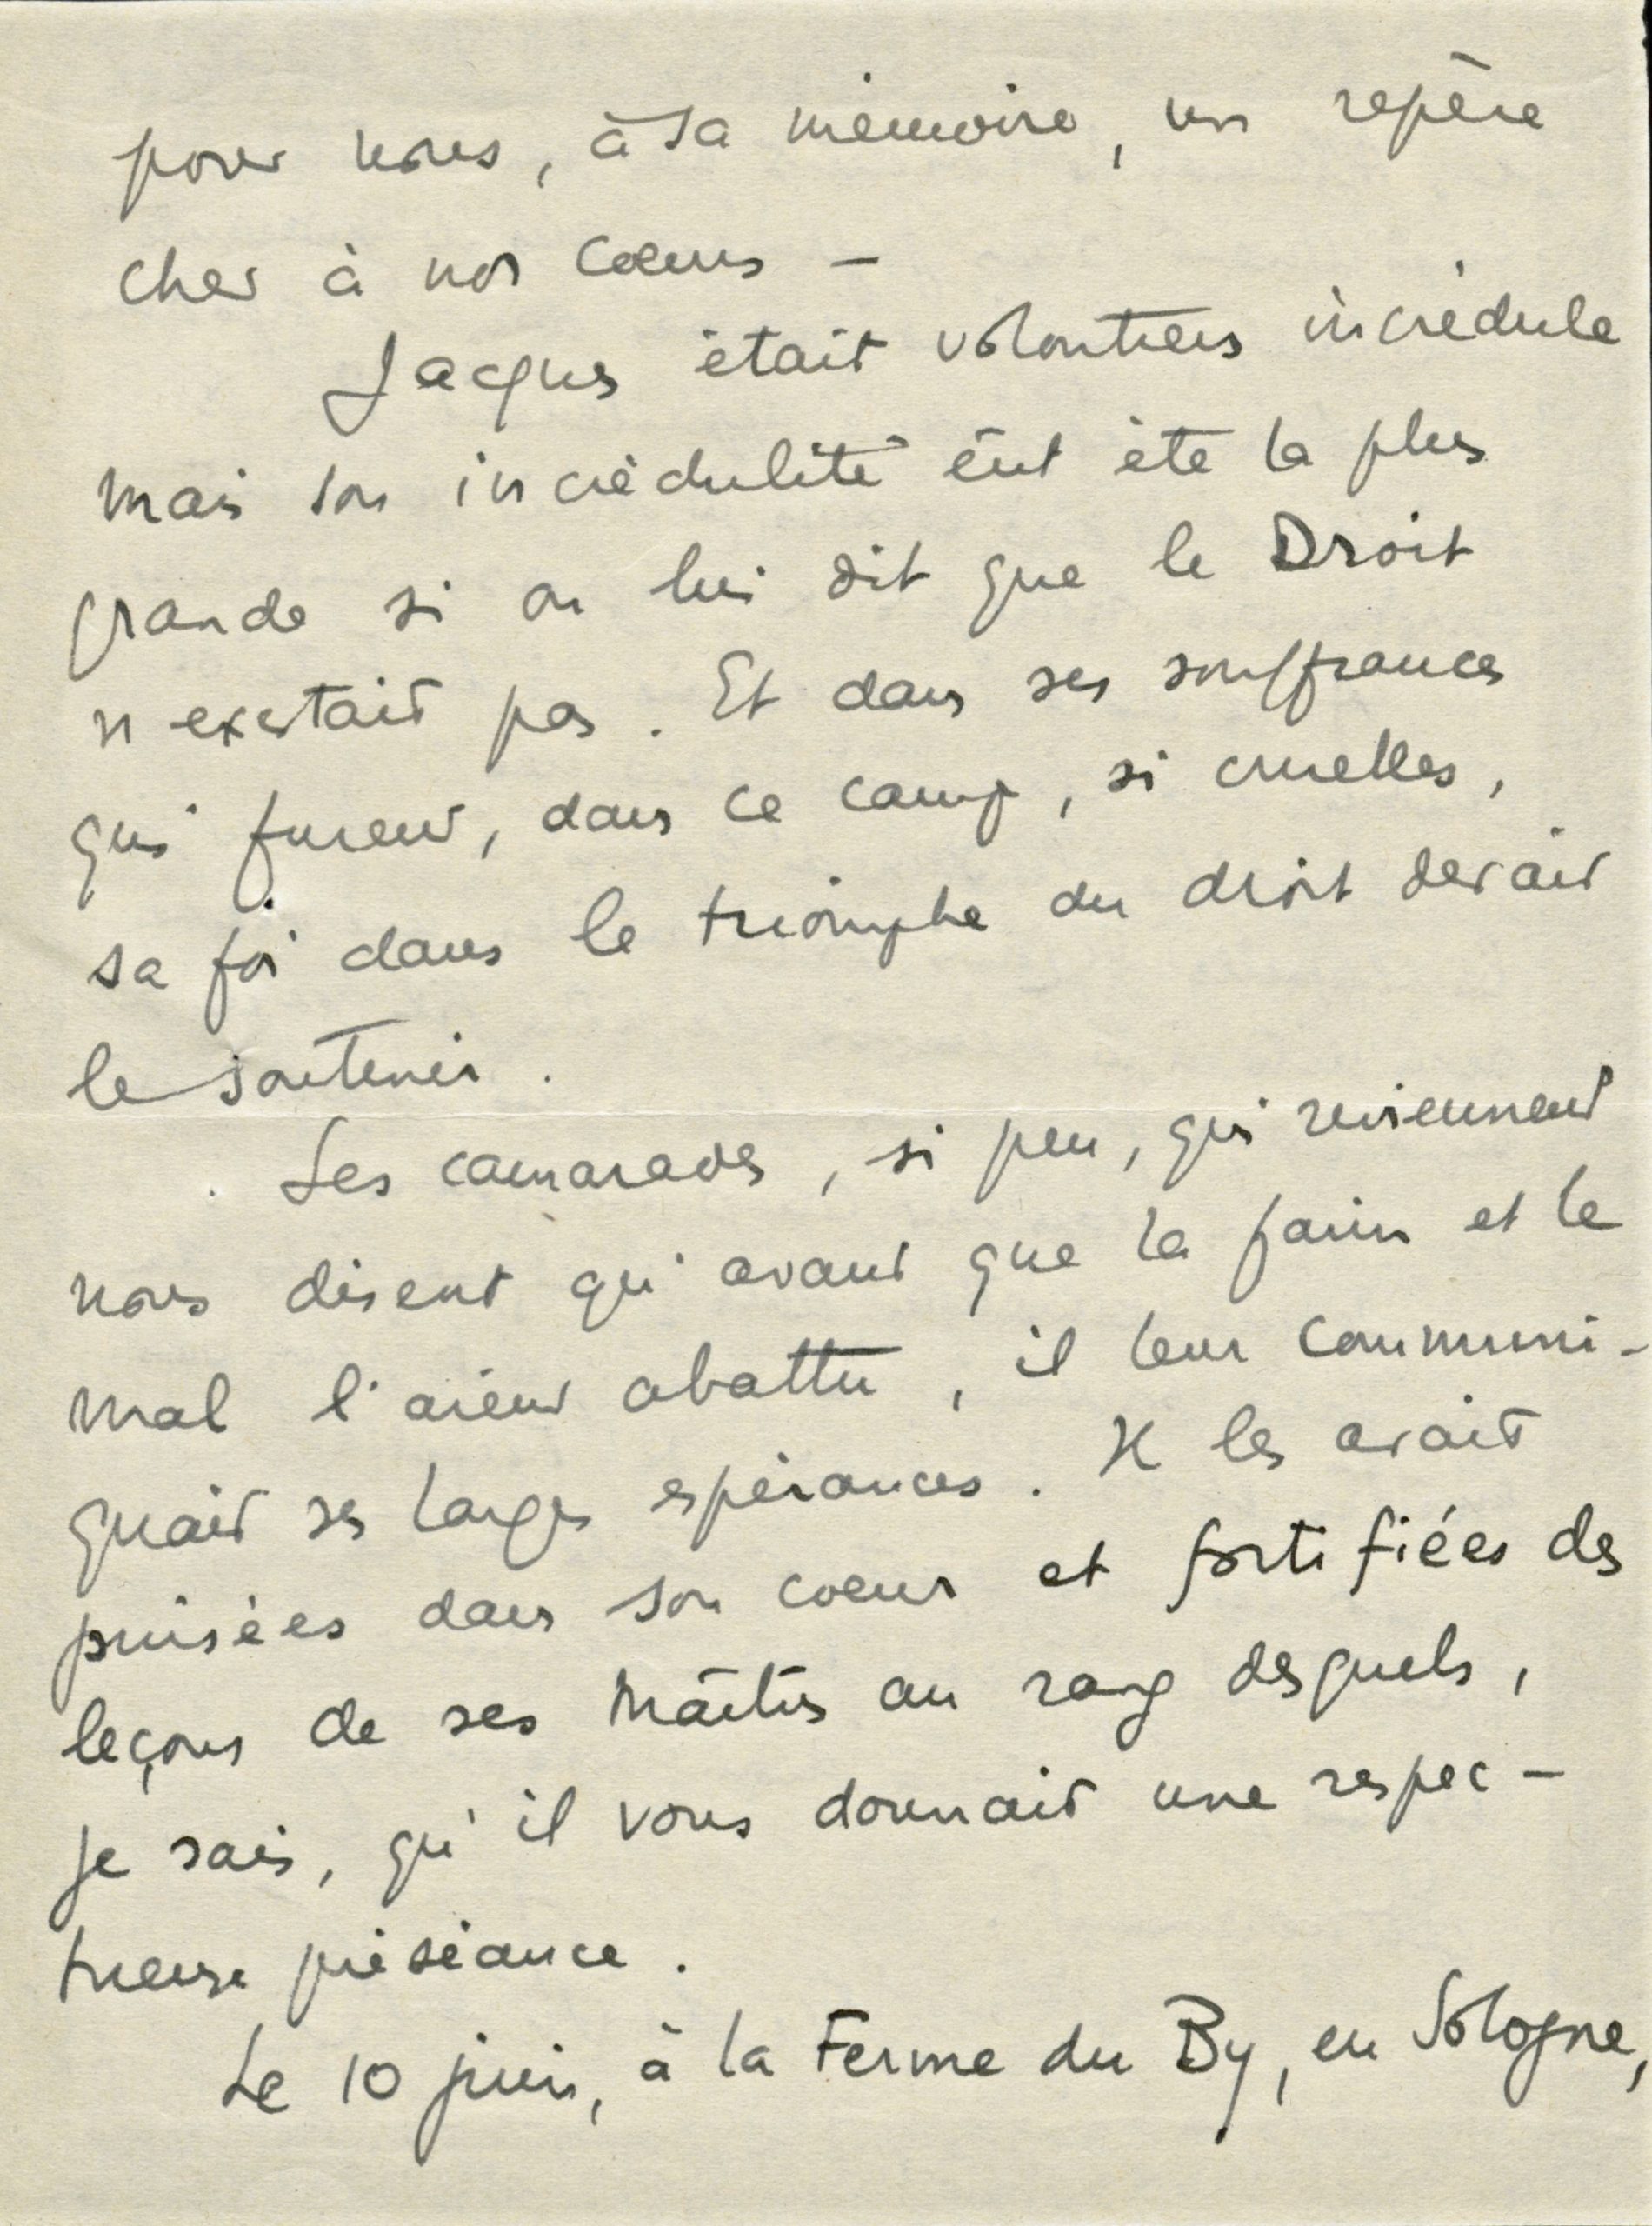 pour nous, à sa mémoire, un repère
cher à nos coeurs -
Jacques était volontiers incrédule
mais son incrédulité eut été la plus
grande si on lui dit que le Droit
n'existait pas. Et dans ses souffrances
qui furent, dans ce camp, si cruelles,
sa foi dans le triomphe du droit devait
le soutenir.
Les camarades, si peu, qui reviennent
nous disent qu'avant que la faim et le
mal l'aient abattu, il leur communi-
quait ses larges espérances. Il les avait
puisées dans son coeur et fortifiées des
leçons de ses Maîtres au rang desquels,
je sais, qu'il vous donnait une respec-
tueuse préséance.
Le 10 juin, à la Ferme du By, en Sologne,